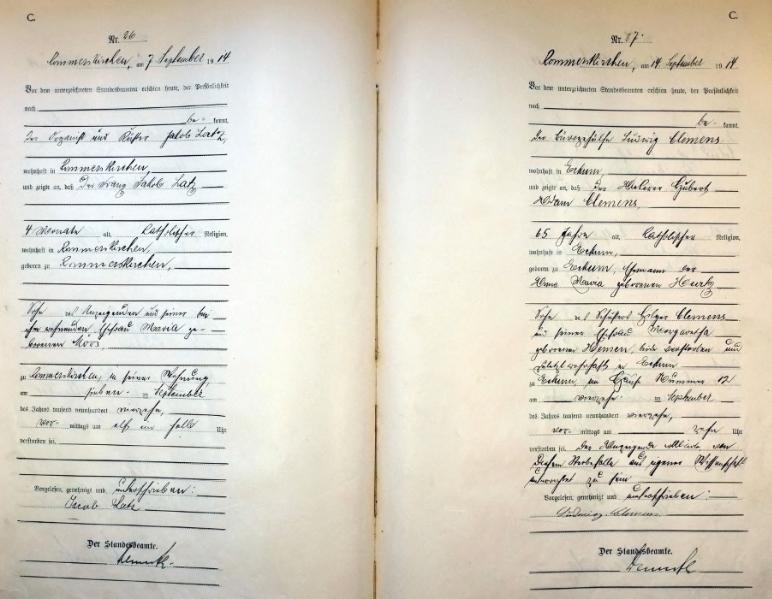 C.
Nr. 26
Rommerskirchen, am 7 September 1914
Vor dem unterzeichneten Standesbeamten erschien heute, der Persönlichkeit
nach
be- kannt,
der Organist und Küster Jakob Latz,
wohnhaft in Rommerskirchen,
und zeigte an, daß der Franz Jakob Latz
4 Monate alt, Katholischer Religion,
wohnhaft in Rommerskirchen,
geboren zu Rommerskirchen,
Sohn des Anzeigenden und seiner bei
ihm wohnenden Ehefrau Maria ge-
borenen Moos
zu Rommerskirchen, in seiner Wohnung,
am sieben- ten September
des Jahres tausend neunhundert vierzehn,
vor- mittags um elf ein halb Uhr
verstorben sei.
Vorgelesen, genehmigt und unterschrieben:
Jacob Latz
Der Standesbeamte.
C.
Nr. 27.
Rommerskirchen, am 14 September 1914
Vor dem unterzeichneten Standesbeamten erschien heute, der Persönlichkeit
nach
be- kannt,
der Bürogehülfe Ludwig Clemens
wohnhaft in Eckum,
und zeigte an, daß der Ackerer Hubert
Adam Clemens,
65 Jahre alt, Katholischer Religion,
wohnhaft in Eckum,
geboren zu Eckum, Ehemann der
Anna Maria geborenen
Sohn des Hilger Clemens
und seiner Ehefrau Margaretha
geborenen beide verstorben und
zuletzt wohnhaft in Eckum
zu Eckum, im Hause Nummer 12
am vierzehn- ten September
des Jahres tausend neunhundert vierzehn,
vor- mittags um zehn Uhr
verstorben sei. Der Anzeigende erklärte von
diesem Sterbefalle aus eigener Wissenschaft
unterrichtet zu sein.
Vorgelesen, genehmigt und unterschrieben:
Ludwig Clemens
Der Standesbeamte.